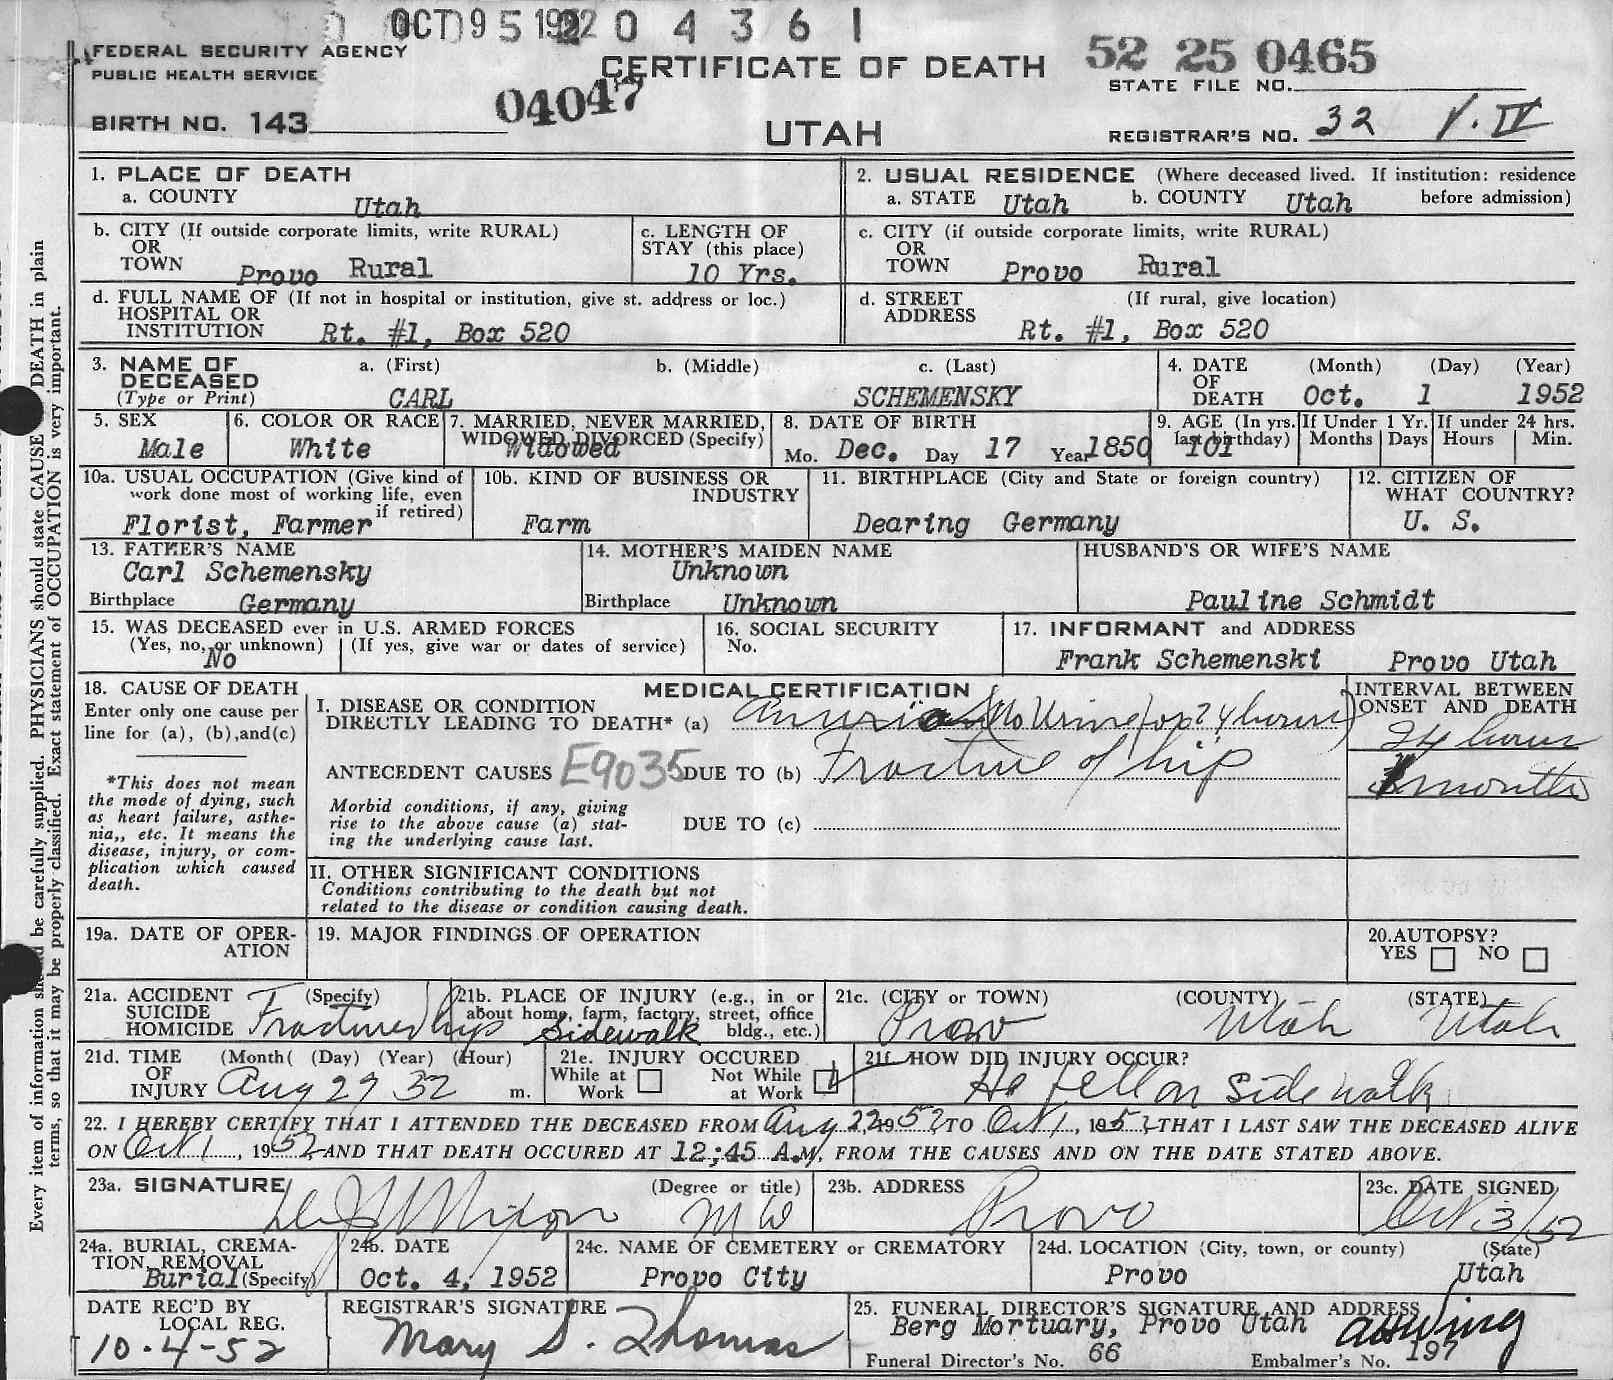 OCT 9 5 1952 2 0 4 3 6 1
FEDERAL SECURITY AGENCY
PUBLIC HEALTH SERVICE
CERTIFICATE OF DEATH
52 25 0465
STATE FILE NO.
04047
BIRTH NO. 143
UTAH
REGISTRAR'S NO. 32 V. IV
1. PLACE OF DEATH
a. COUNTY Utah
2. USUAL RESIDENCE (Where deceased lived. If institution: residence before admission)
a. STATE Utah b. COUNTY Utah
b. CITY (If outside corporate limits, write RURAL) OR TOWN Provo Rural
c. LENGTH OF STAY (this place) 10 Yrs.
c. CITY (if outside corporate limits, write RURAL) OR TOWN Provo Rural
d. FULL NAME OF (If not in hospital or institution, give st. address or loc.) HOSPITAL OR INSTITUTION Rt. #1, Box 520
d. STREET ADDRESS (If rural, give location) Rt. #1, Box 520
3. NAME OF DECEASED (Type or Print)
a. (First) CARL
b. (Middle)
c. (Last) SCHEMENSKY
4. DATE OF DEATH (Month) (Day) (Year) Oct. 1 1952
5. SEX Male
6. COLOR OR RACE White
7. MARRIED, NEVER MARRIED, WIDOWED, DIVORCED (Specify) Widowed
8. DATE OF BIRTH Mo. Dec. Day 17 Year 1850
9. AGE (In yrs. last birthday) 101
If Under 1 Yr. Months Days
If under 24 hrs. Hours Min.
10a. USUAL OCCUPATION (Give kind of work done most of working life, even if retired) Florist, Farmer
10b. KIND OF BUSINESS OR INDUSTRY Farm
11. BIRTHPLACE (City and State or foreign country) Dearing Germany
12. CITIZEN OF WHAT COUNTRY? U. S.
13. FATHER'S NAME Carl Schemensky
Birthplace Germany
14. MOTHER'S MAIDEN NAME Unknown
Birthplace Unknown
HUSBAND'S OR WIFE'S NAME Pauline Schmidt
15. WAS DECEASED ever in U.S. ARMED FORCES
(Yes, no, or unknown) No (If yes, give war or dates of service)
16. SOCIAL SECURITY No.
17. INFORMANT and ADDRESS
Frank Schemenski Provo Utah
18. CAUSE OF DEATH
Enter only one cause per line for (a), (b),and(c)
*This does not mean the mode of dying, such as heart failure, asthenia,, etc. It means the disease, injury, or complication which caused death.
MEDICAL CERTIFICATION
I. DISEASE OR CONDITION DIRECTLY LEADING TO DEATH* (a) Anuria (No Urine for 24 hours)
ANTECEDENT CAUSES E9035 DUE TO (b) Fracture of hip
Morbid conditions, if any, giving rise to the above cause (a) stating the underlying cause last.
DUE TO (c)
INTERVAL BETWEEN ONSET AND DEATH
24 hours
months
II. OTHER SIGNIFICANT CONDITIONS
Conditions contributing to the death but not related to the disease or condition causing death.
19a. DATE OF OPERATION
19. MAJOR FINDINGS OF OPERATION
20. AUTOPSY?
YES NO
21a. ACCIDENT SUICIDE HOMICIDE (Specify) Fractured hip
21b. PLACE OF INJURY (e.g., in or about home, farm, factory, street, office bldg., etc.) Sidewalk
21c. (CITY or TOWN) (COUNTY) (STATE)
Provo Utah Utah
21d. TIME OF INJURY (Month( (Day) (Year) (Hour) m.
Aug 27 52
21e. INJURY OCCURED
While at Work Not While at Work
21f. HOW DID INJURY OCCUR?
He fell on Sidewalk
22. I HEREBY CERTIFY THAT I ATTENDED THE DECEASED FROM Aug 22, 1952 TO Oct 1, 1952 THAT I LAST SAW THE DECEASED ALIVE
ON Oct 1, 1952 AND THAT DEATH OCCURED AT 12;45 A.M, FROM THE CAUSES AND ON THE DATE STATED ABOVE.
23a. SIGNATURE (Degree or title) MD
23b. ADDRESS Provo
23c. DATE SIGNED Oct 3/52
24a. BURIAL, CREMATION, REMOVAL (Specify) Burial
24b. DATE Oct. 4, 1952
24c. NAME OF CEMETERY or CREMATORY Provo City
24d. LOCATION (City, town, or county) (State) Provo Utah
DATE REC'D BY LOCAL REG. 10-4-52
REGISTRAR'S SIGNATURE Mary S. Thomas
25. FUNERAL DIRECTOR'S SIGNATURE AND ADDRESS
Berg Mortuary, Provo Utah
Funeral Director's No. 66 Embalmer's No. 197
Every item of information should be carefully supplied. PHYSICIANS should state CAUSE DEATH in plain
terms, so that it may be properly classified. Exact statement of OCCUPATION is very important.